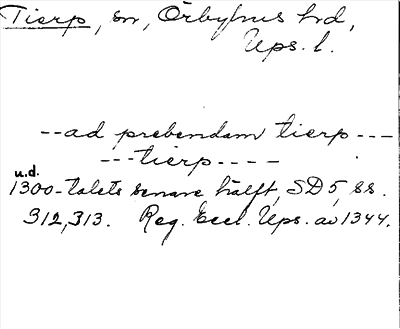 Tierp, sn, Örbyhus hd,
Ups. l.
--ad prebendam tierp ---
---tierp----
u.d.
1300-talets senare hälft, SD 5, ss.
312, 313. Reg. Eccl. Ups. av 1344.